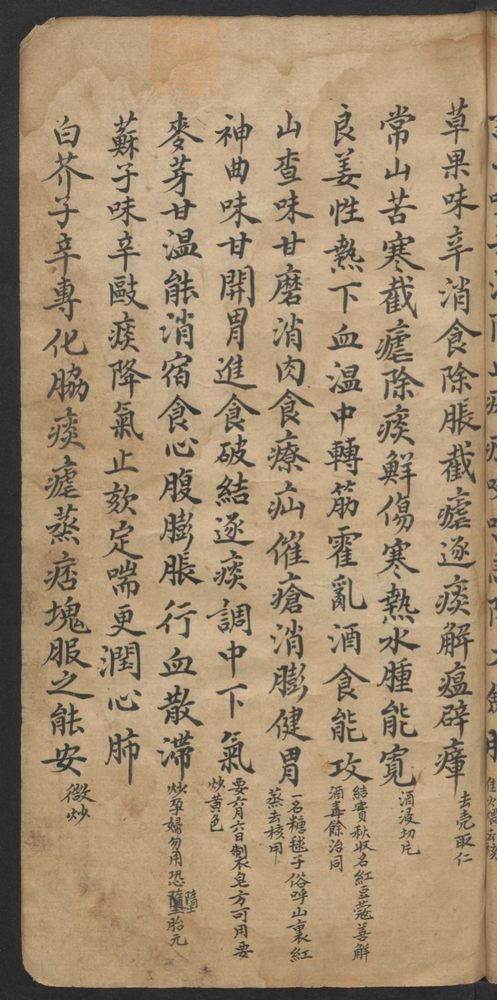 草果味辛消食除脹截瘧逐痰解瘟辟瘴 去壳取仁
常山苦寒截瘧除痰鮮傷寒熱水腫能寬 酒浸切片
良姜性熱下血温中轉筋霍亂酒食能攻 結實秋収名紅豆蔻善解酒毒餘治同
山查味甘磨消肉食療疝催瘡消膨健胃 一名糖毬子俗呼山裏紅蒸去核用
神曲味甘開胃進食破結逐痰調中下氣 要六月六日制衣皂方可用要炒黄色
麥芽甘温能消宿食心腹膨脹行血散滞 炒孕婦勿用恐墮胎元
蘇子味辛敺痰降氣止欬定喘更潤心肺
白芥子辛專化脇痰瘧蒸痞塊服之能安 微炒